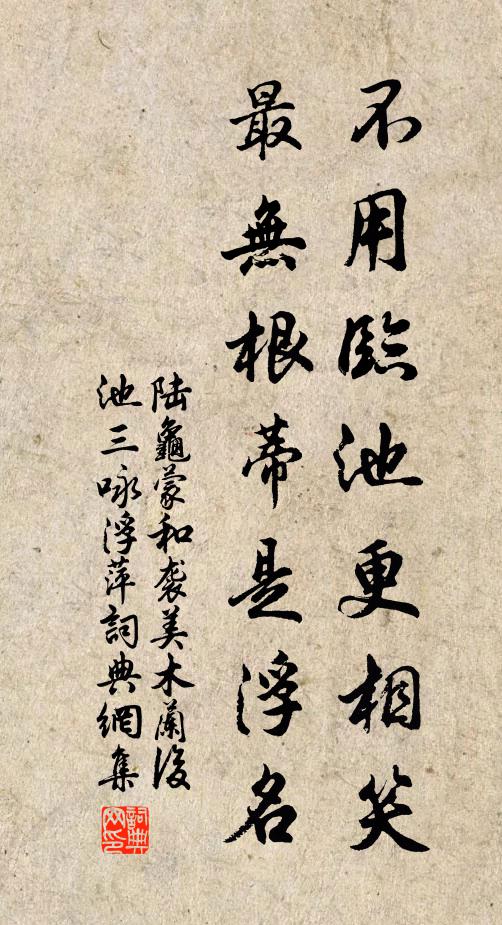 不用臨池更相笑
最無根蒂是浮名
陆龜蒙和袭美木蘭後
池三咏浮萍詞典網集
詞典
网印